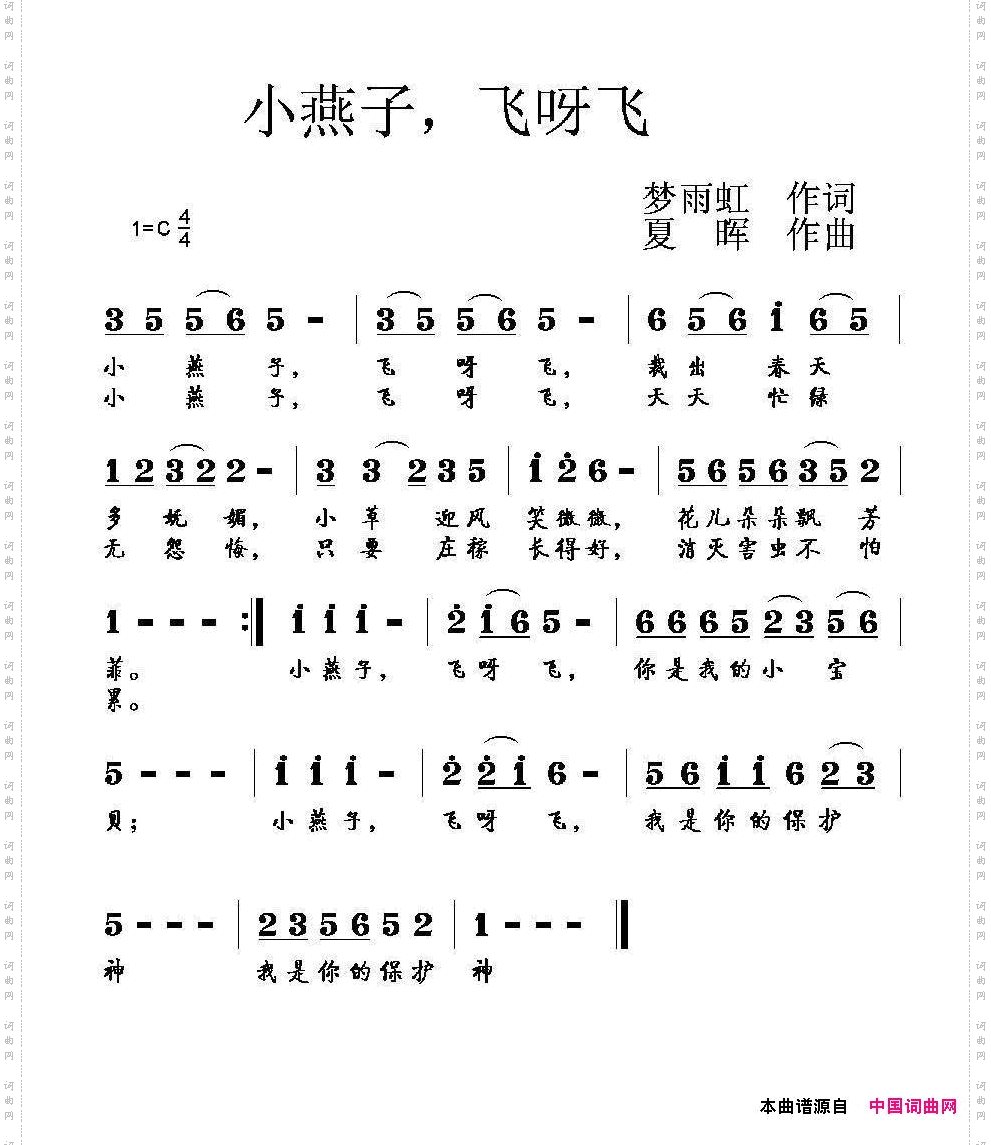 小燕子，飞呀飞
梦雨虹 作词
1=C 4/4
夏 晖 作曲
3 5 5 6 5 - | 3 5 5 6 5 - | 6 5 6 i 6 5 |
小 燕 子， 飞 呀 飞， 我 出 春 天
小 燕 子， 飞 呀 飞， 天 天 忙 绿
1 2 3 2 2 - | 3 3 2 3 5 | i 2 6 - | 5 6 5 6 3 5 2 |
多 妩 媚， 小 草 迎 风 笑 微 微， 花 儿 朵 朵 飘 芳
无 怨 悔， 只 要 庄 稼 长 得 好， 消 灭 害 虫 不 怕
1 - - - :| i i i - | 2 i 6 5 - | 6 6 6 5 2 3 5 6 |
菲。 小 燕 子， 飞 呀 飞， 你 是 我 的 小 宝
累。
5 - - - | i i i - | 2 2 i 6 - | 5 6 i i 6 2 3 |
贝； 小 燕 子， 飞 呀 飞， 我 是 你 的 保 护
5 - - - | 2 3 5 6 5 2 | 1 - - - ||
神 我 是 你 的 保 护 神
本曲谱源自 中国词曲网